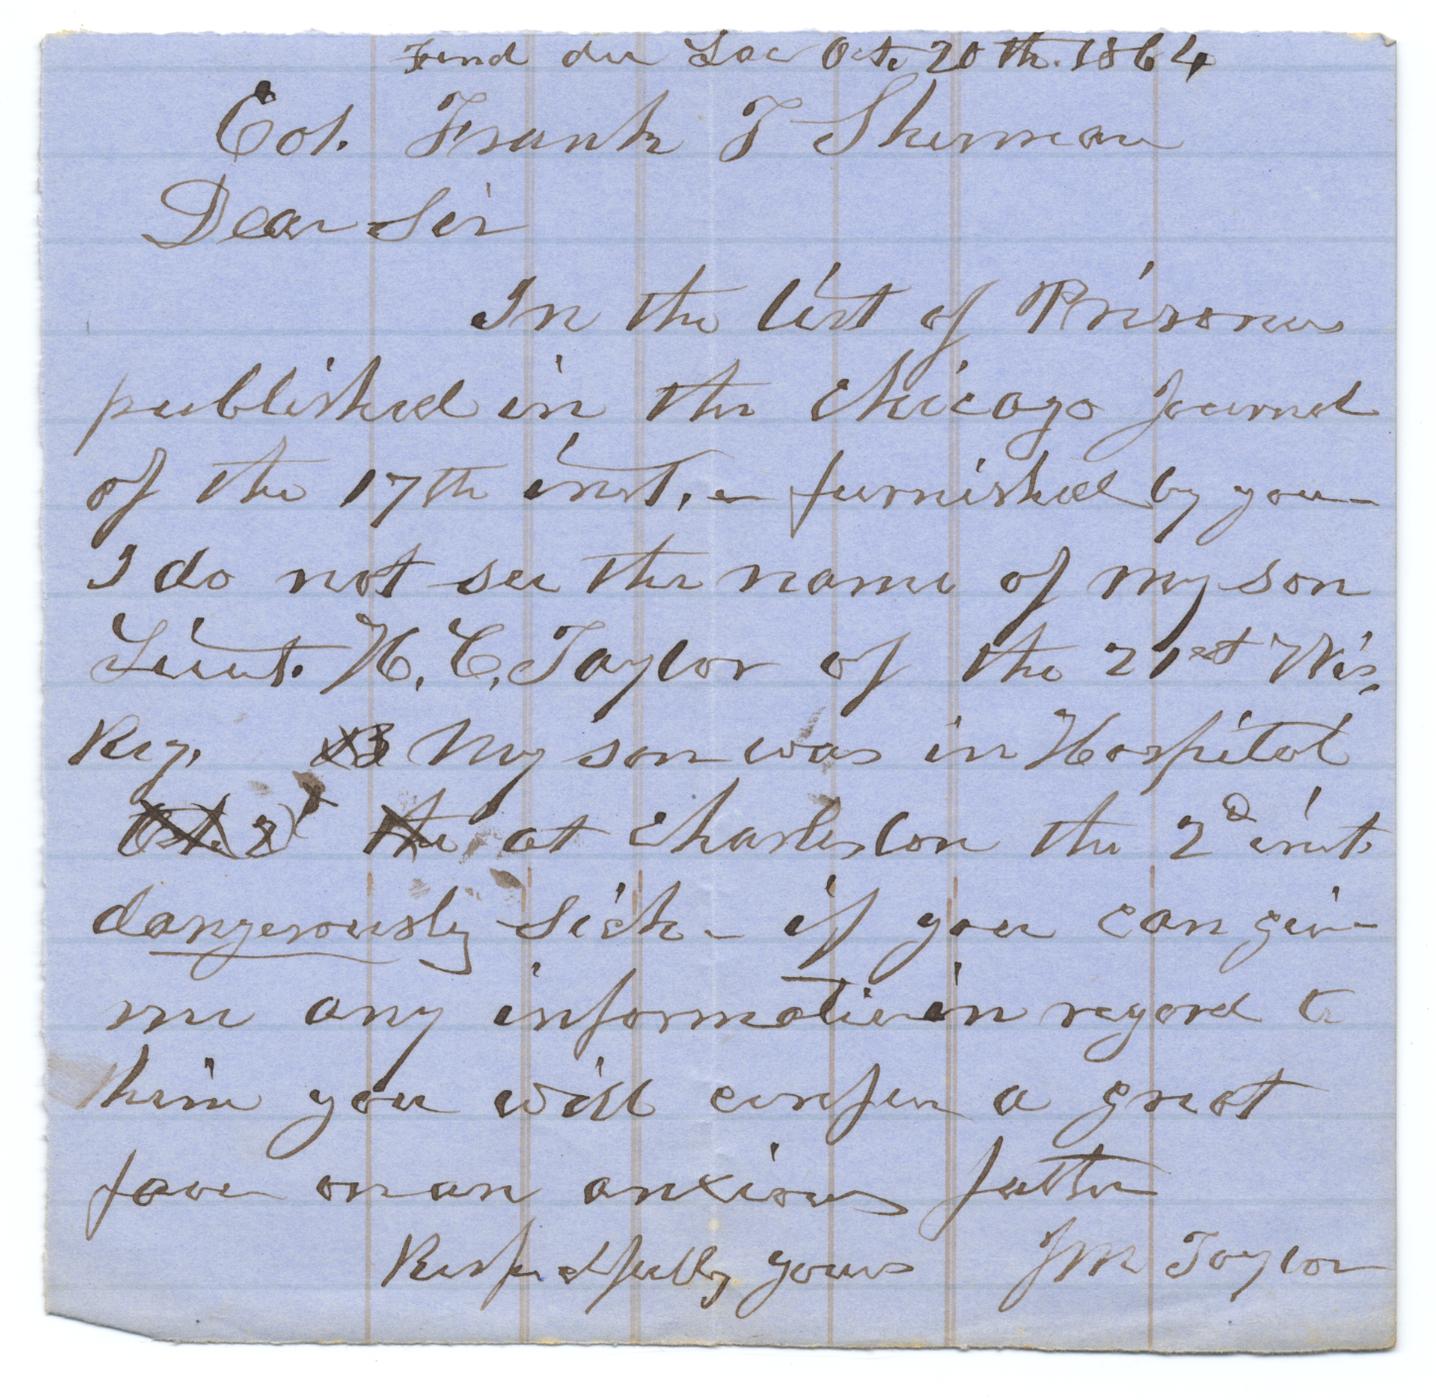 Fond du Lac Oct. 20th. 1864
Col. Frank T Sherman
Dear Sir
In the list of Prisoners
published in the Chicago Journal
of the 17th inst. - furnished by you -
I do not see the name of my son
Lieut. H. C. Taylor of the 21st Wis.
Reg. My son was in Hospital
the at Charleston the 2d inst.
dangerously sick - if you can give
me any information in regard to
him you will confer a great
favor on an anxious father
Respectfully yours J M Taylor